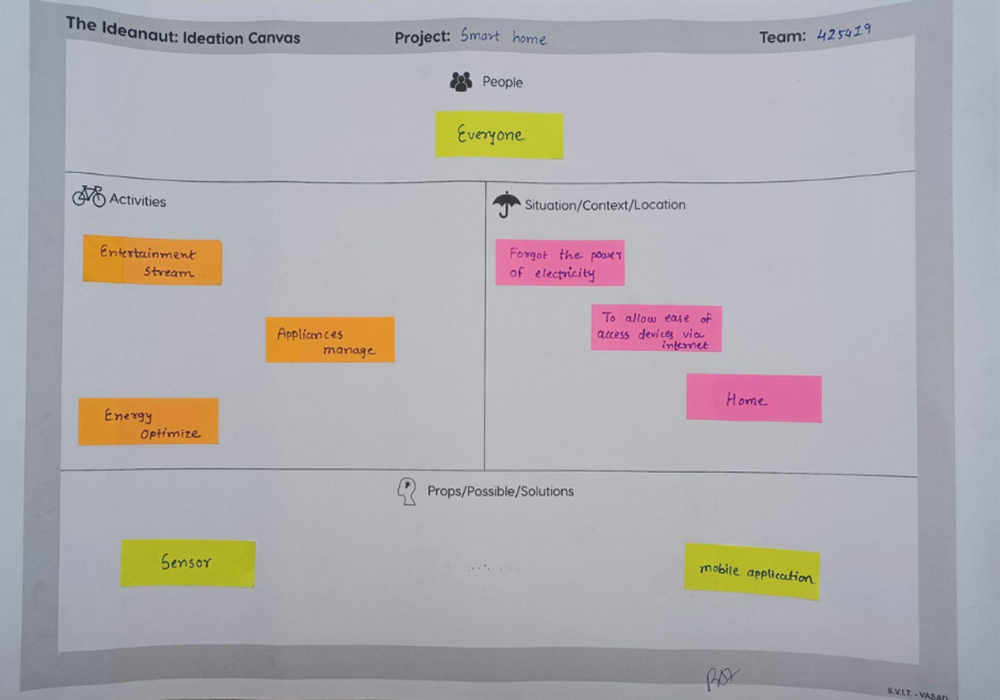 The Ideanaut: Ideation Canvas
Project: Smart home
Team: 425419
People
Everyone
Activities
Entertainment
Stream
Appliances
manage
Energy
Optimize
Situation/Context/Location
Forgot the power
of electricity
To allow ease of
access devices via
internet
Home
Props/Possible/Solutions
Sensor
mobile application
S.V.I.T. - VASAD